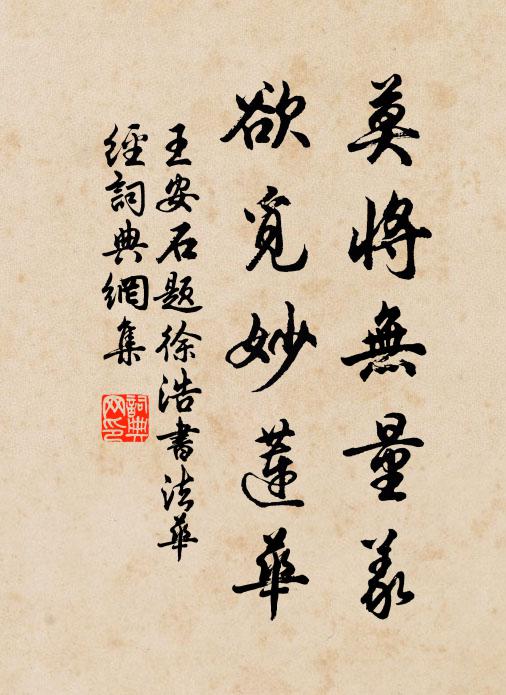 莫將無量義
欲覓妙蓮華
王安石題徐浩書法華
經詞典網集
詞典网印